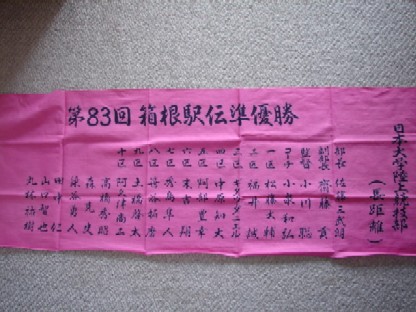 第83回 箱根駅伝準優勝
日本大学陸上競技部
(長距離)
部長 佐藤三武朗
副部長 齋藤
監督 小川 聡
コーチ 小 和弘
一区 松藤大輔
二区 福井 誠
三区
四区 中原知大
五区 阿部豊幸
六区 末吉 翔
七区 秀島隼人
八区 笹谷拓磨
九区 土橋啓太
十区 阿久津尚二
高橋秀昭
森
人
田中 仁
山口智也
丸林祐樹